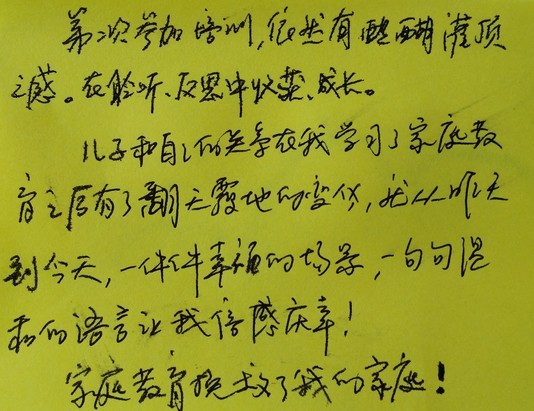 第二次参加培训,依然有醍醐灌顶
之感。在聆听、反思中收获、成长。
儿子和自己的关系在我学习了家庭教
育之后有了翻天覆地的变化,我从昨天
到今天,一件件幸福的场景,一句句温
和的语言让我倍感庆幸!
家庭教育挽救了我的家庭!